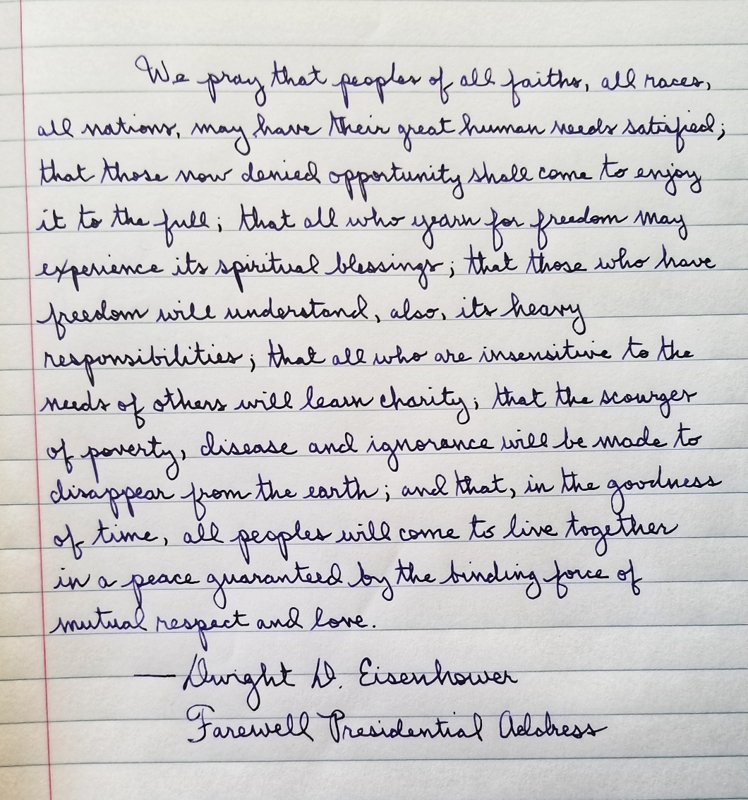 We pray that peoples of all faiths, all races,
all nations, may have their great human needs satisfied;
that those now denied opportunity shall come to enjoy
it to the full; that all who yearn for freedom may
experience its spiritual blessings; that those who have
freedom will understand, also, its heavy
responsibilities; that all who are insensitive to the
needs of others will learn charity; that the scourges
of poverty, disease and ignorance will be made to
disappear from the earth; and that, in the goodness
of time, all peoples will come to live together
in a peace guaranteed by the binding force of
mutual respect and love.
— Dwight D. Eisenhower
Farewell Presidential Address